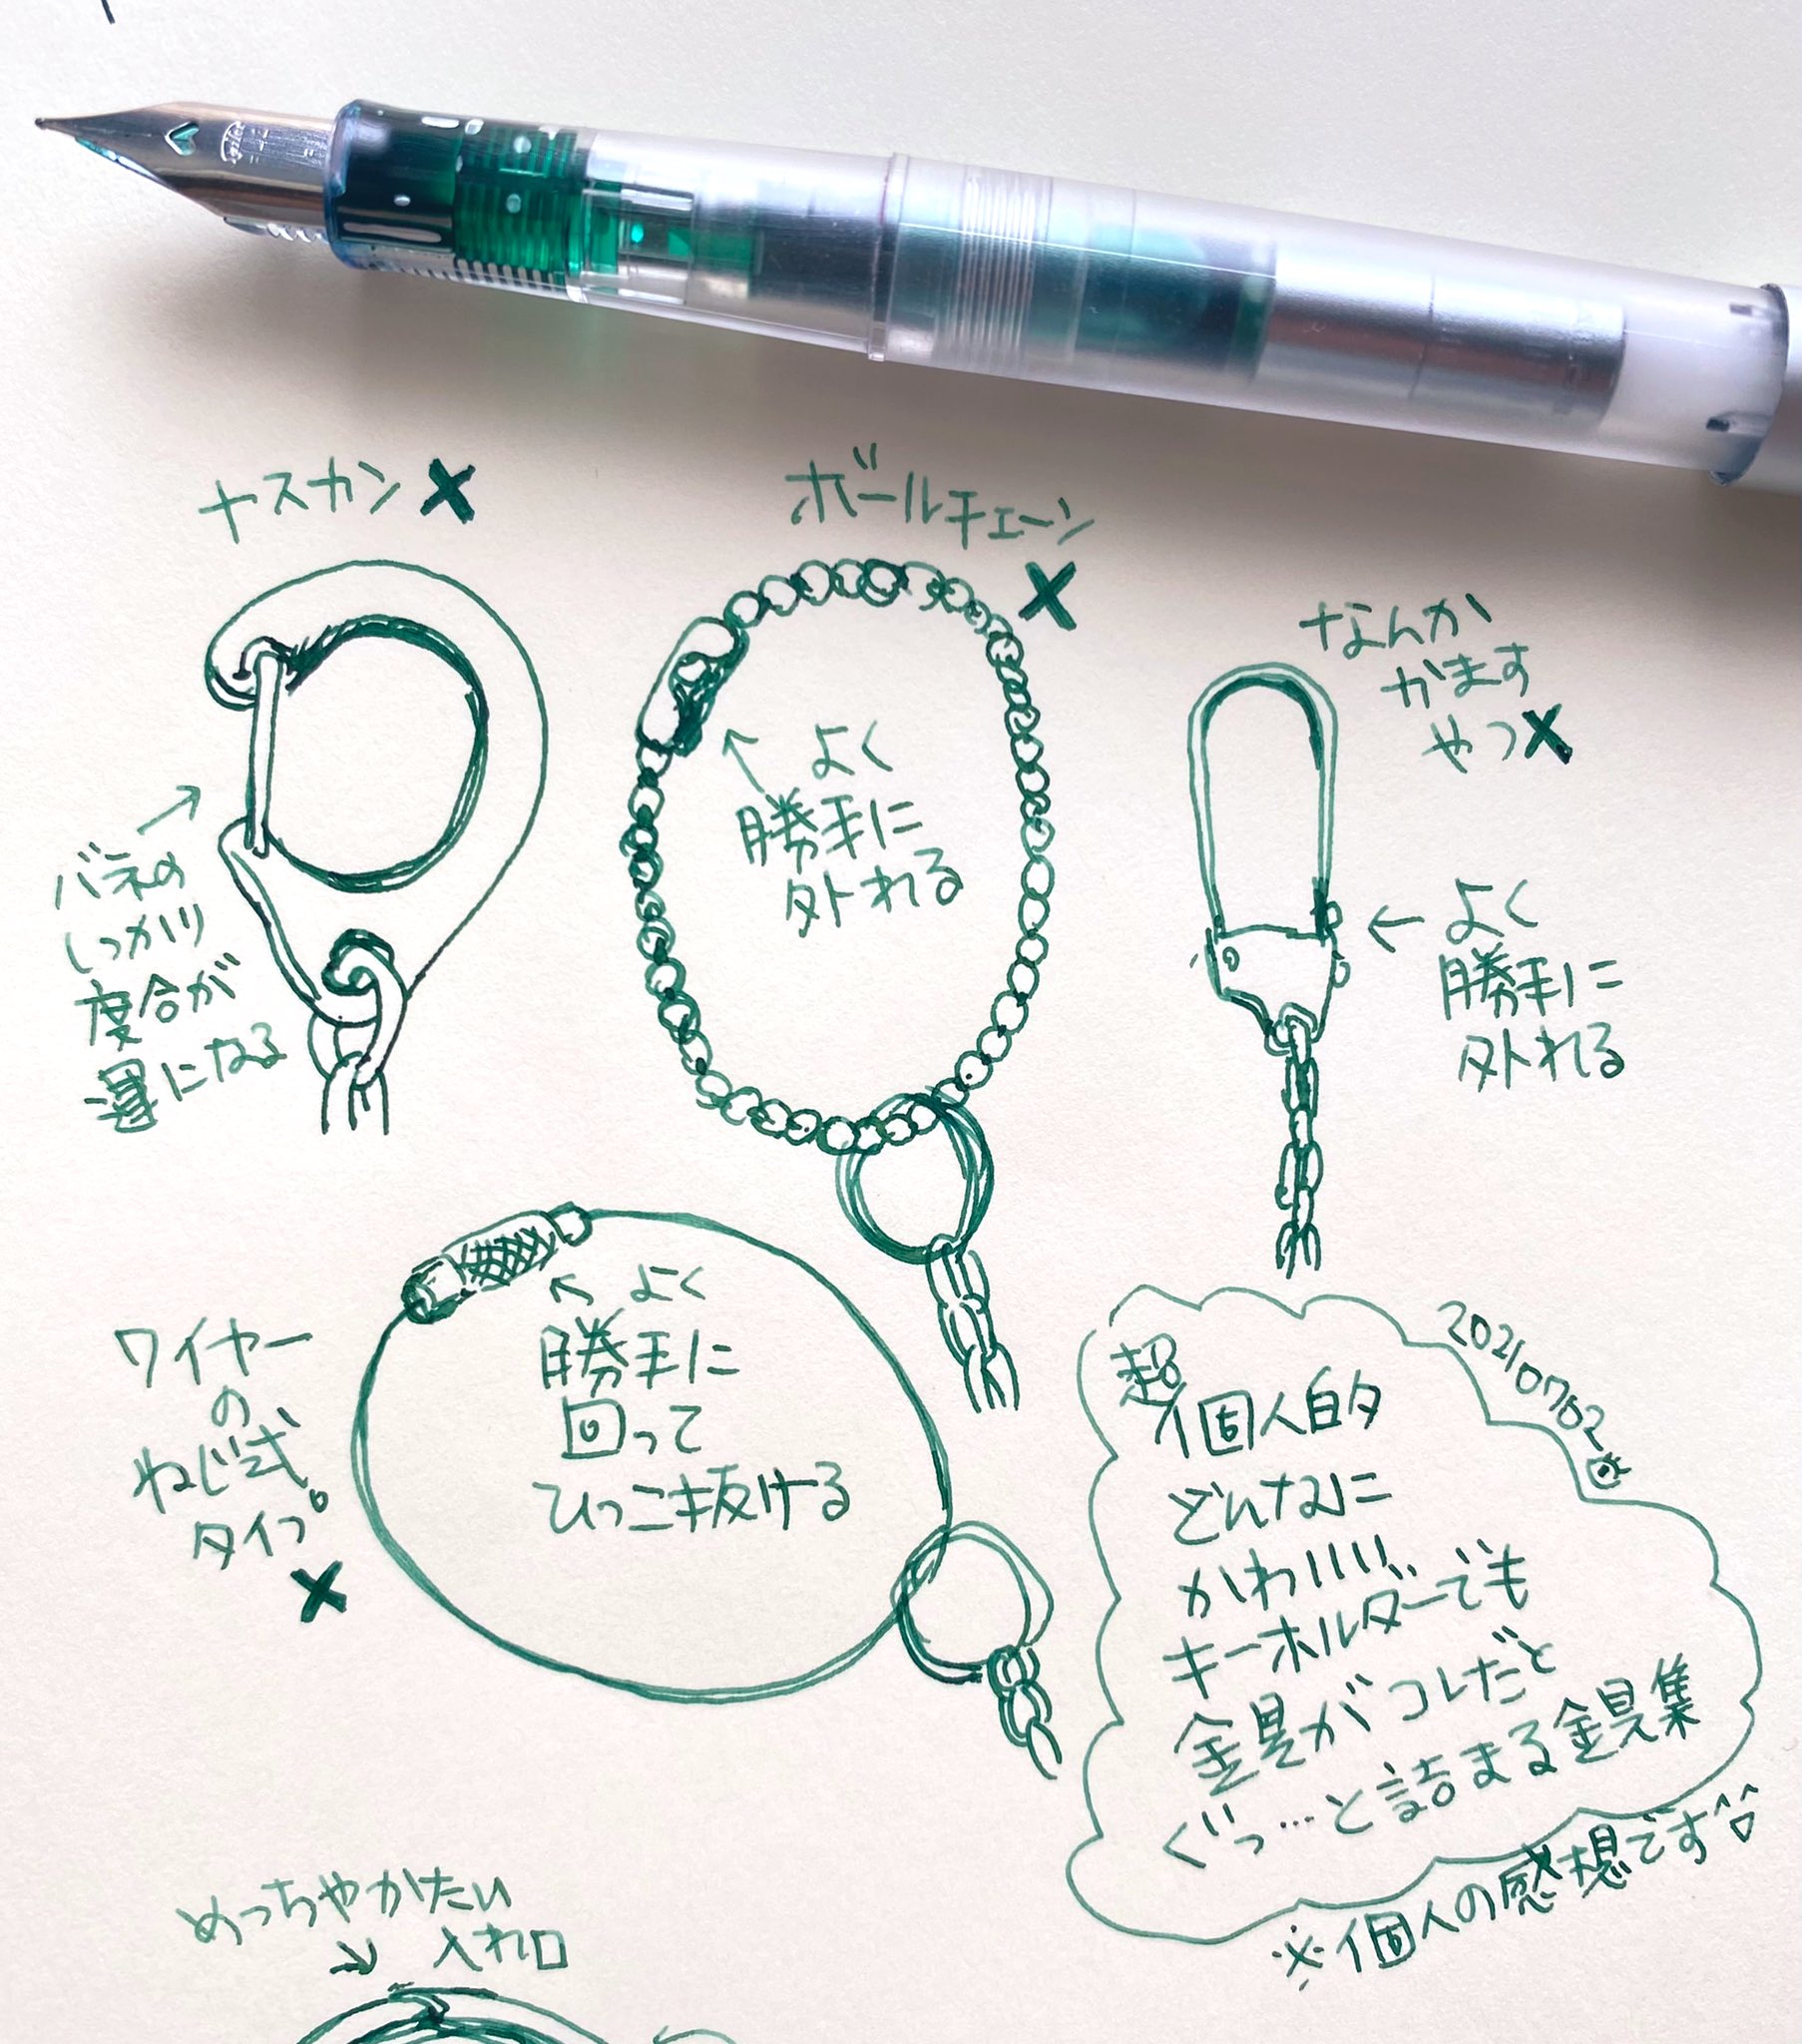 ナスカン✖
バネの
しっかり
度合が
運になる
ボールチェーン
✖
よく
勝手に
外れる
なんか
かます
やつ✖
よく
勝手に
外れる
ワイヤー
の
ねじ式
タイプ
✖
よく
勝手に
回って
ひっこ抜ける
20210702
超
個人的
どんなに
かわいいい
キーホルダーでも
金具がコレだと
ぐっ…と詰まる金具集
※個人の感想です
めっちゃかたい
入れ口